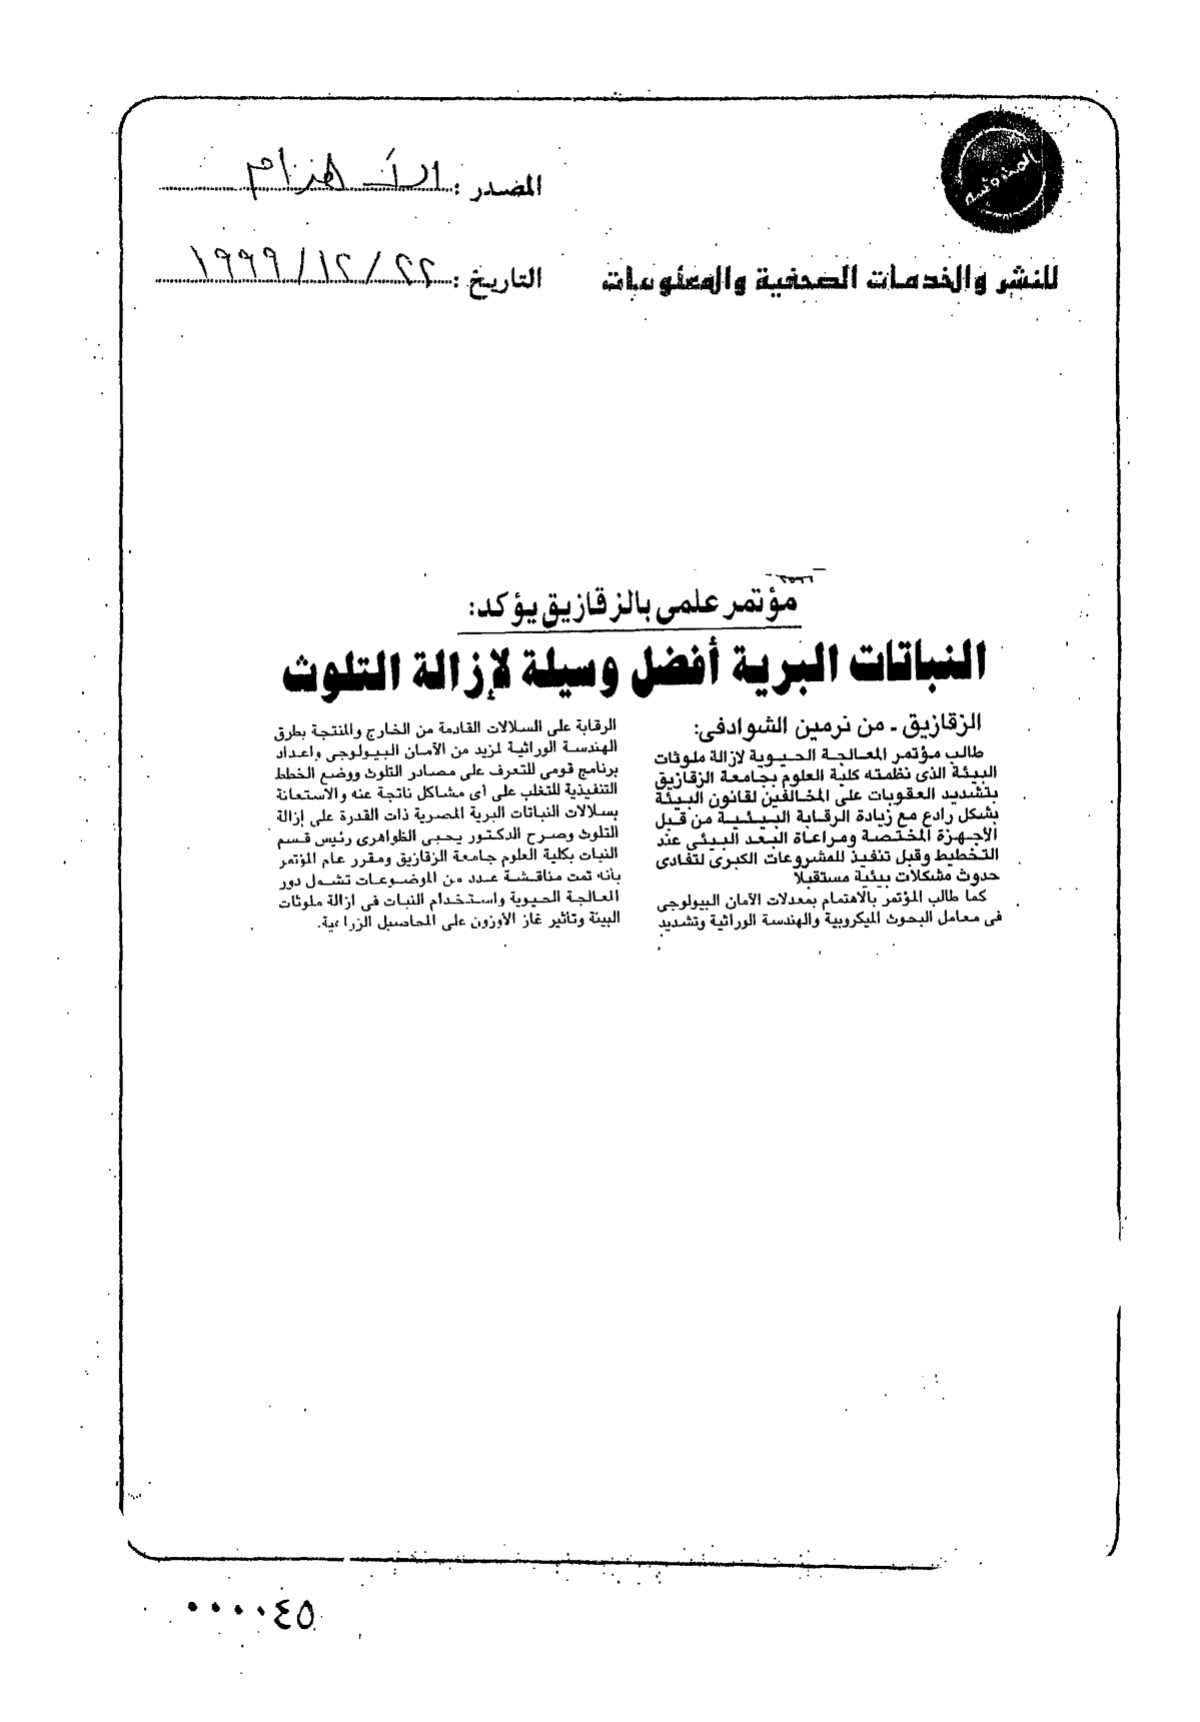 المصدر : الأهرام
للنشر والخدمات الصحفية والمعلومات
التاريخ : ٢٢ / ١٢ / ١٩٩٩
مؤتمر علمى بالزقازيق يؤكد:
النباتات البرية أفضل وسيلة لإزالة التلوث
الزقازيق ـ من نرمين الشوادفى:
طالب مؤتمر المعالجة الحيوية لازالة ملوثات
البيئة الذى نظمته كلية العلوم بجامعة الزقازيق
بتشديد العقوبات على المخالفين لقانون البيئة
بشكل رادع مع زيادة الرقابة البيئية من قبل
الأجهزة المختصة ومراعاة البعد البيئى عند
التخطيط وقبل تنفيذ للمشروعات الكبرى لتفادى
حدوث مشكلات بيئية مستقبلا
كما طالب المؤتمر بالاهتمام بمعدلات الأمان البيولوجى
فى معامل البحوث الميكروبية والهندسة الوراثية وتشديد
الرقابة على السلالات القادمة من الخارج والمنتجة بطرق
الهندسة الوراثية لمزيد من الآمان البيولوجى واعداد
برنامج قومى للتعرف على مصادر التلوث ووضع الخطط
التنفيذية للتغلب على أى مشاكل ناتجة عنه والاستعانة
بسلالات النباتات البرية المصرية ذات القدرة على إزالة
التلوث وصرح الدكتور يحيى الظواهرى رئيس قسم
النبات بكلية العلوم جامعة الزقازيق ومقرر عام المؤتمر
بأنه تمت مناقشة عدد من الموضوعات تشمل دور
المعالجة الحيوية واستخدام النبات فى ازالة ملوثات
البيئة وتأثير غاز الأوزون على المحاصيل الزراعية.
٠٠٠٠٤٥